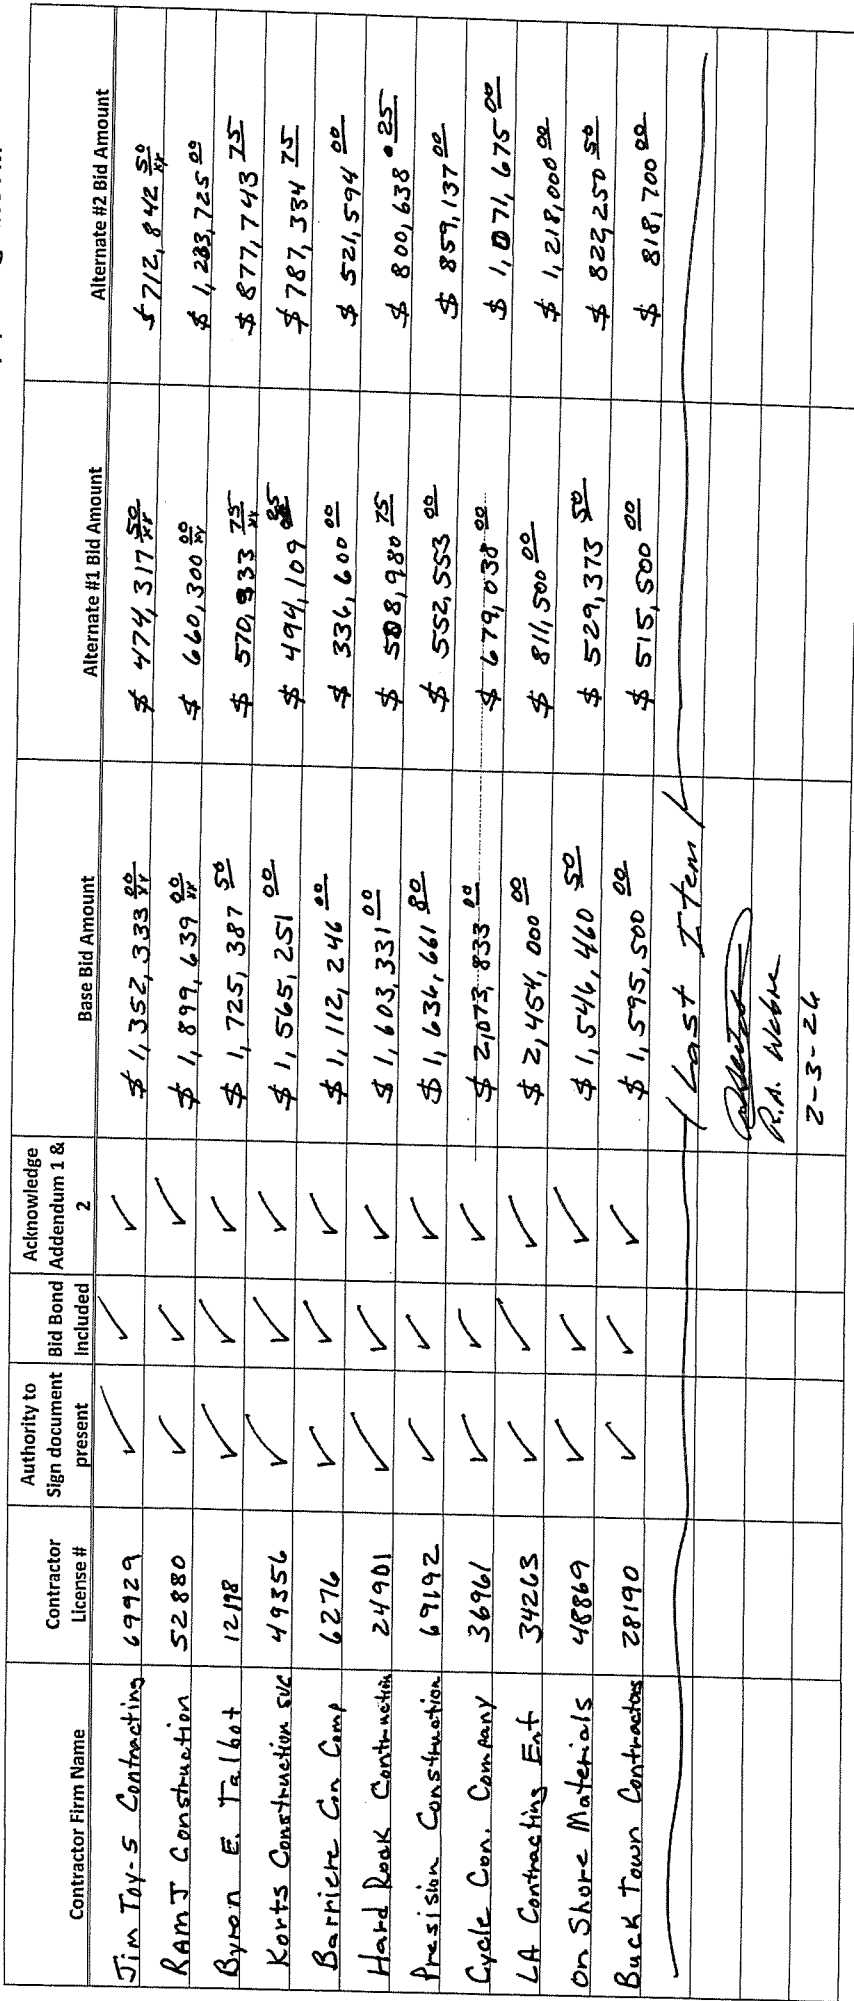 Contractor Firm Name | Contractor License # | Authority to Sign document present | Bid Bond Included | Acknowledge Addendum 1 & 2 | Base Bid Amount | Alternate #1 Bid Amount | Alternate #2 Bid Amount
Jim Toy-s Contracting | 69929 | ✓ | ✓ | ✓ | $1,352,333 00/xx | $ 474,317 50/xx | $712,842 50/xx
RAMJ Construction | 52880 | ✓ | ✓ | ✓ | $1,899,639 00/xx | $ 660,300 00/xx | $ 1,233,725 00
Byron E. Talbot | 12198 | ✓ | ✓ | ✓ | $1,725,387 50 | $ 570,933 75/xx | $877,743 75
Korts Construction SVC | 49356 | ✓ | ✓ | ✓ | $1,565,251 00 | $ 494,109 | $787,334 75
Barriere Con Comp | 6276 | ✓ | ✓ | ✓ | $1,112,246 00 | $ 336,600 00 | $ 521,594 00
Hard Rock Contruction | 24901 | ✓ | ✓ | ✓ | $1,603,331 00 | $ 508,980 75 | $ 800,638.25
Presision Construction | 69192 | ✓ | ✓ | ✓ | $1,636,661 80 | $ 552,553 00 | $ 859,137 00
Cycle Con. Company | 36961 | ✓ | ✓ | ✓ | $2,073,833 00 | $ 679,038 00 | $ 1,071,675 00
LA Contracting Ent | 34263 | ✓ | ✓ | ✓ | $2,454,000 00 | $ 811,500 00 | $ 1,218,000 00
On Shore Materials | 48869 | ✓ | ✓ | ✓ | $1,546,460 50 | $ 529,373 50 | $ 822,250 50
Buck Town Contractors | 28190 | ✓ | ✓ | ✓ | $1,595,500 00 | $ 515,500 00 | $ 818,700 00
/ Last Item /
R.A. Webre
2-3-26